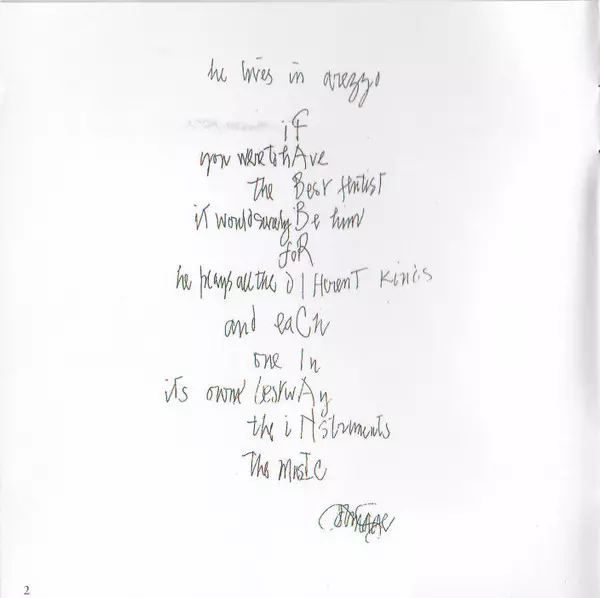 he lives in arezzo
iF
you were to hAve
the Best flutist
iT would surely Be him
foR
he plays all the diffferenT kinds
and eaCh
one In
its owne bestwAy
the iNstruments
The musIC
2